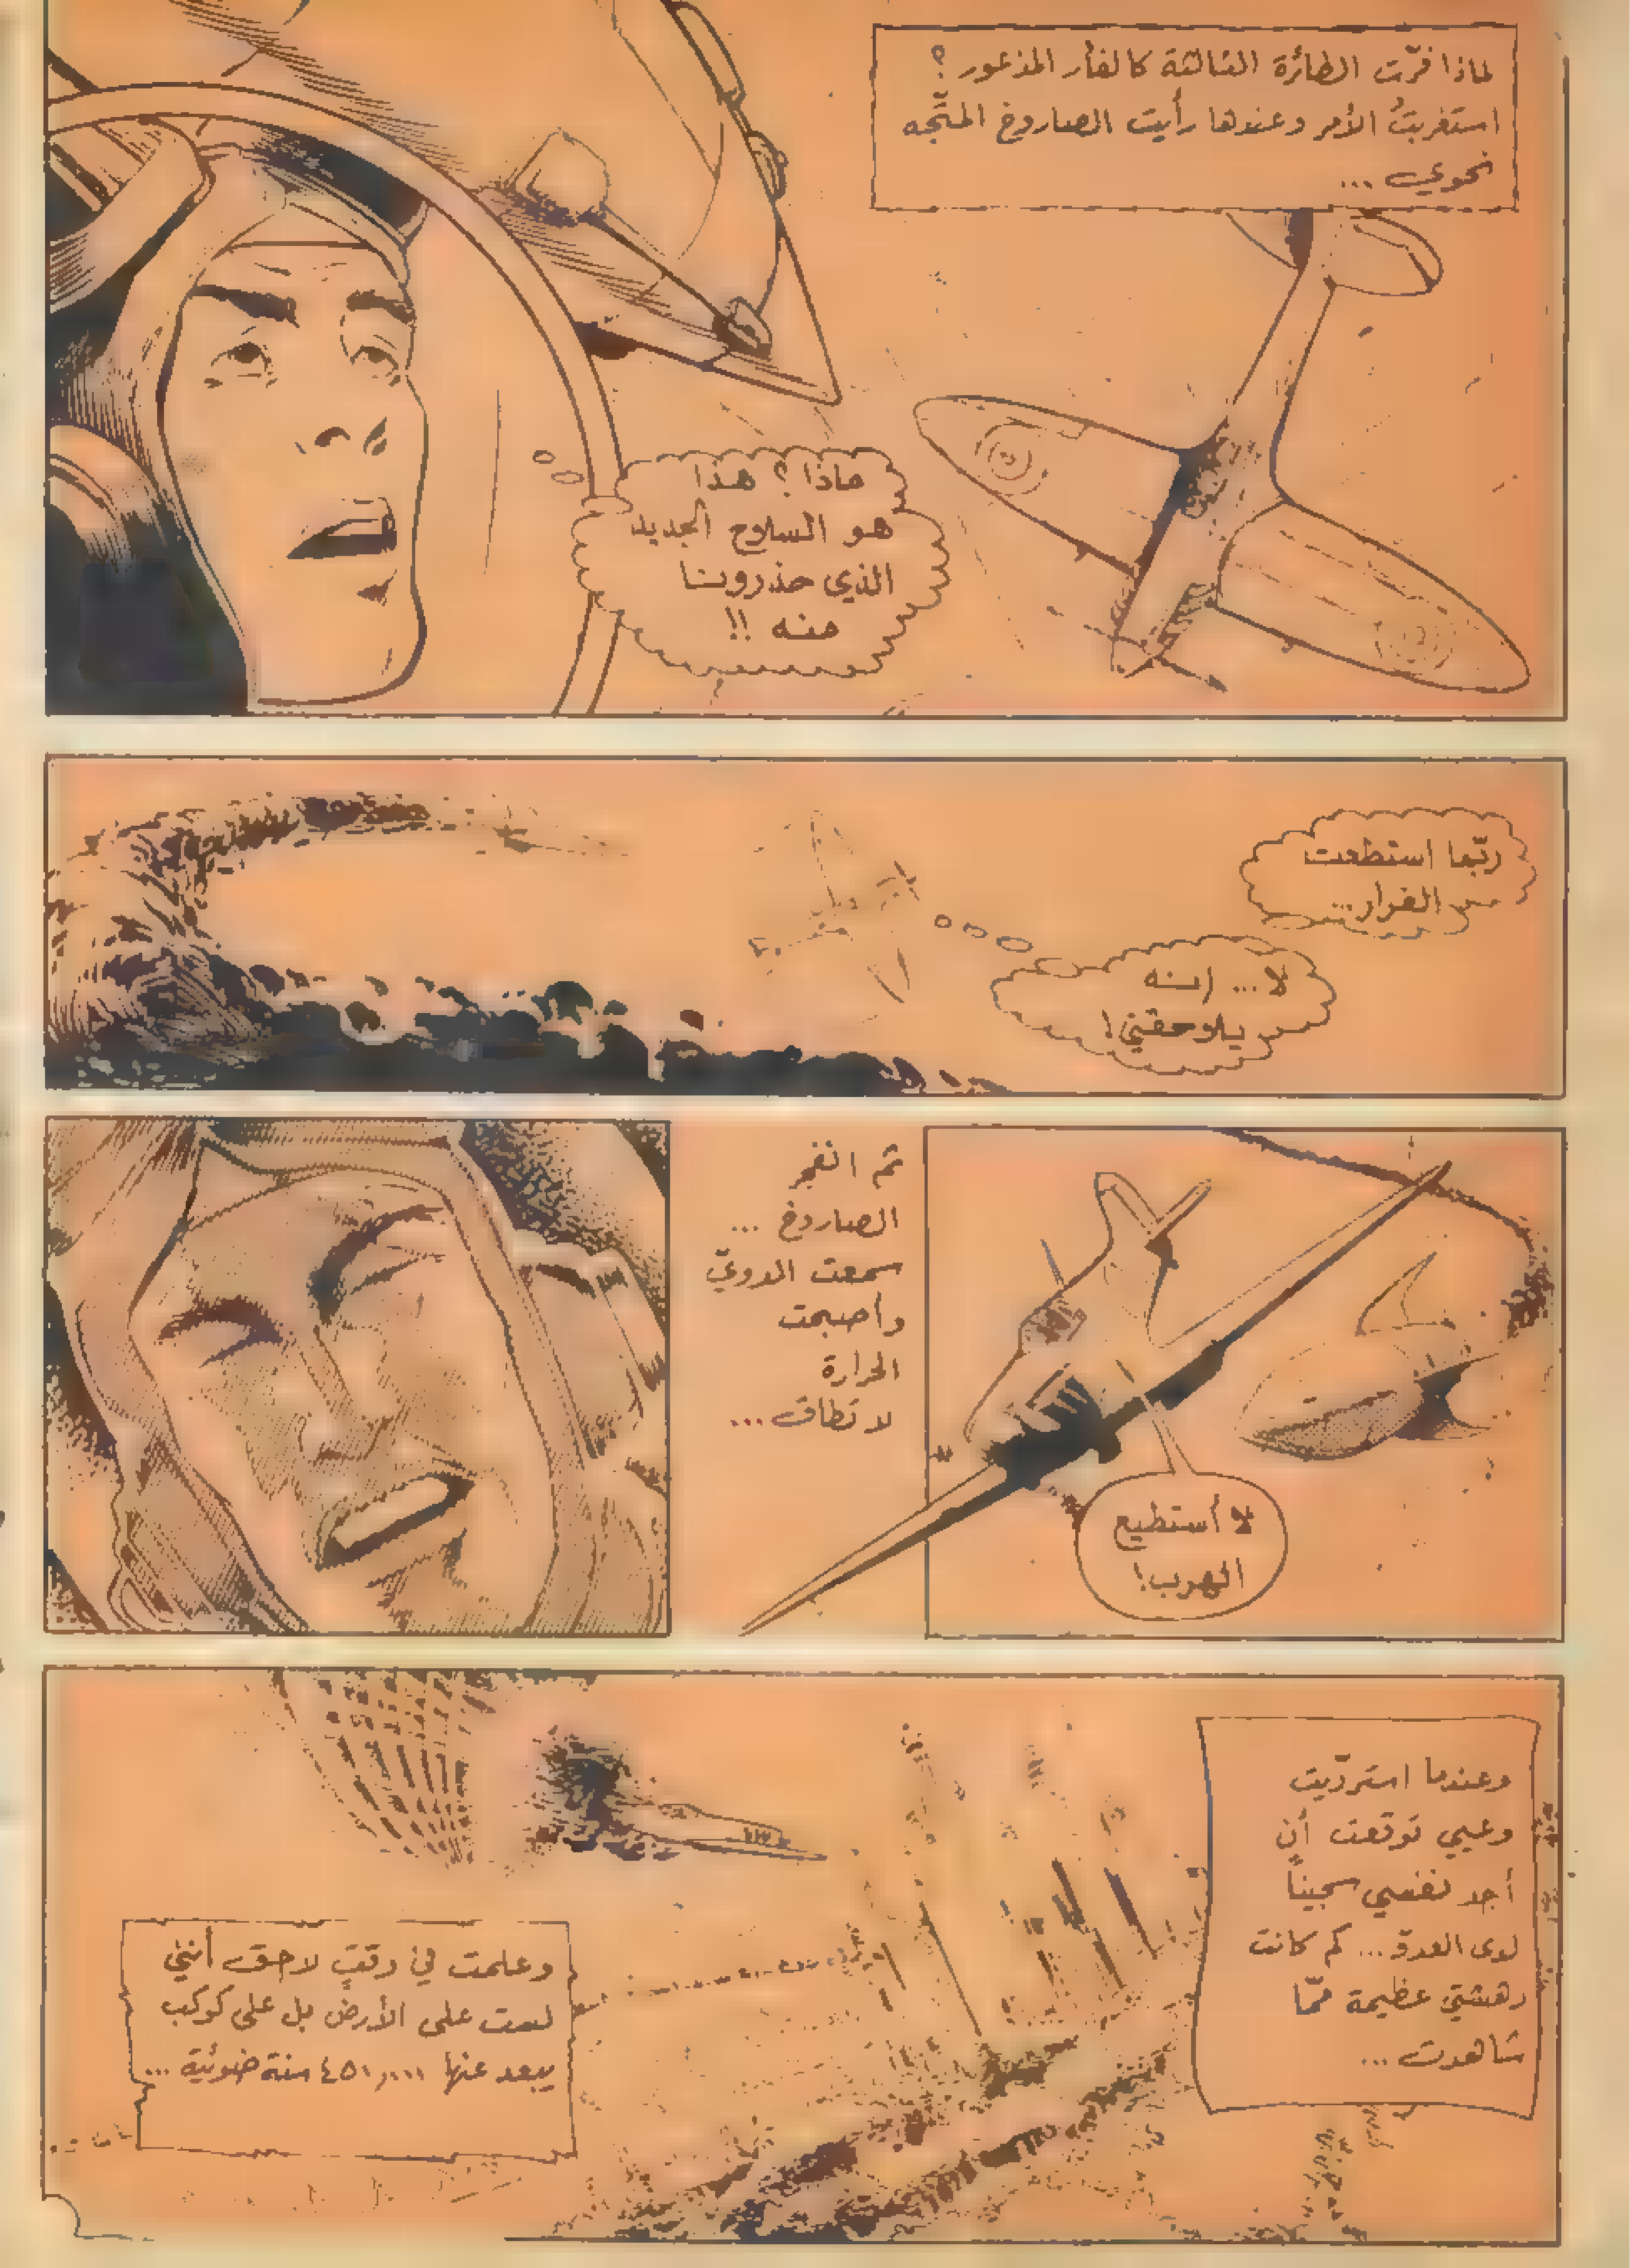 لماذا فرّت الطائرة الثالثة كالفأر المذعور؟
استغربتُ الأمر وعندها رأيت الصاروخ المتّجه
نحوي ...
ماذا؟ هذا
هو السلاح الجديد
الذي حذرونا
منه !!
ربّما استطعت
الفرار...
لا... إنه
يلاحقني!
لا أستطيع
الهرب!
ثم انفجر
الصاروخ ...
سمعت الدويّ
وأصبحت
الحرارة
لا تطاق ...
وعندما استردّيت
وعيي توقعت أن
أجد نفسي سجيناً
لدى العدوّ... كم كانت
دهشتي عظيمة ممّا
شاهدت ...
وعلمت في وقتٍ لاحق أنني
لست على الأرض بل على كوكب
يبعد عنها سنة ضوئية ...